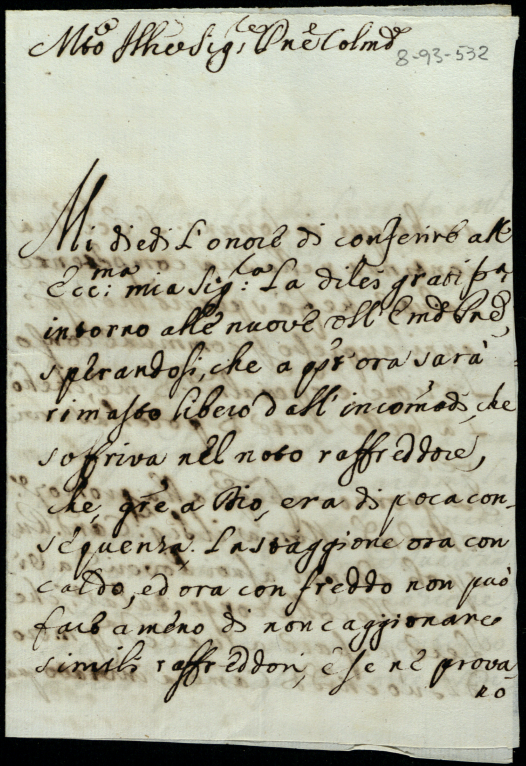 Mto Illre Sigre Pne Colmo
8-93-532
Mi diedi l'onore di conferire all'
Eccma: mia Sigra: La di lei gratissma
intorno alle nuove dell' Emo Pne,
sperandosi, che a quest'ora sarà
rimasto libero dall'incomodo, che
soffriva nel noto raffreddore,
che, gre a Dio, era di poca con-
sequenza. La staggione ora con
caldo, ed ora con freddo non può
fare a meno di non caggionare
simili raffreddori, e se ne prova-
no